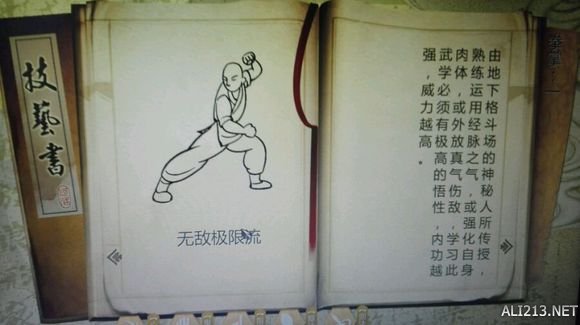 技藝書
无敌极限流
由地下格斗场的神秘人所传授，
熟练运用经脉之气，或强化自身
肉体，或外放真气伤敌，学习此
武学必须有极高的悟性，内功越
强，威力越高。
ALI213.NET